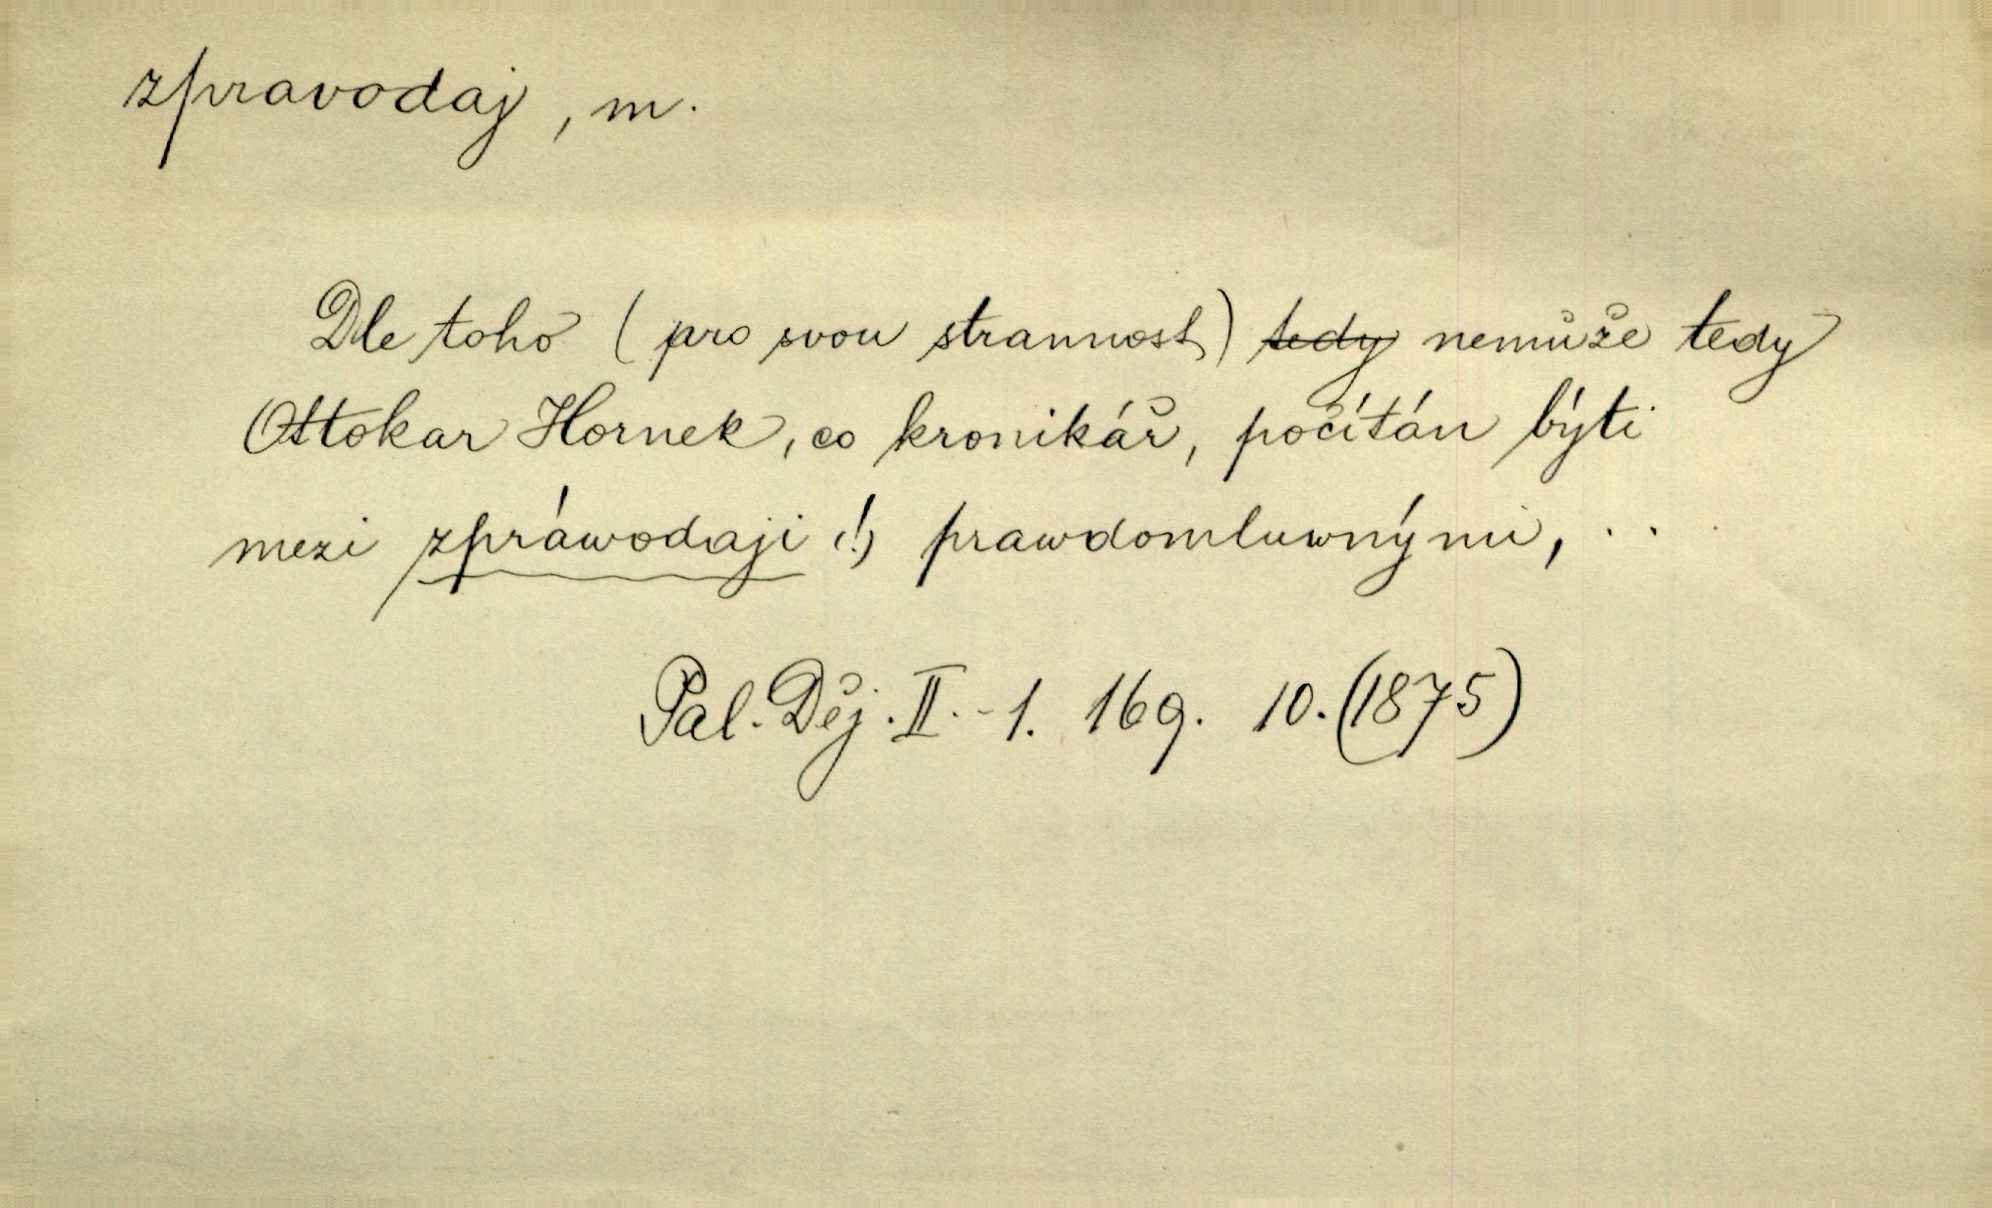 zpravodaj, m.
Dle toho (pro svou strannost) tedy nemůže tedy
Ottokar Hornek, co kronikář, počítán býti
mezi zpráwodaji (!) prawdomluwnými, ...
Pal. Děj. II.-1. 169. 10. (1875)